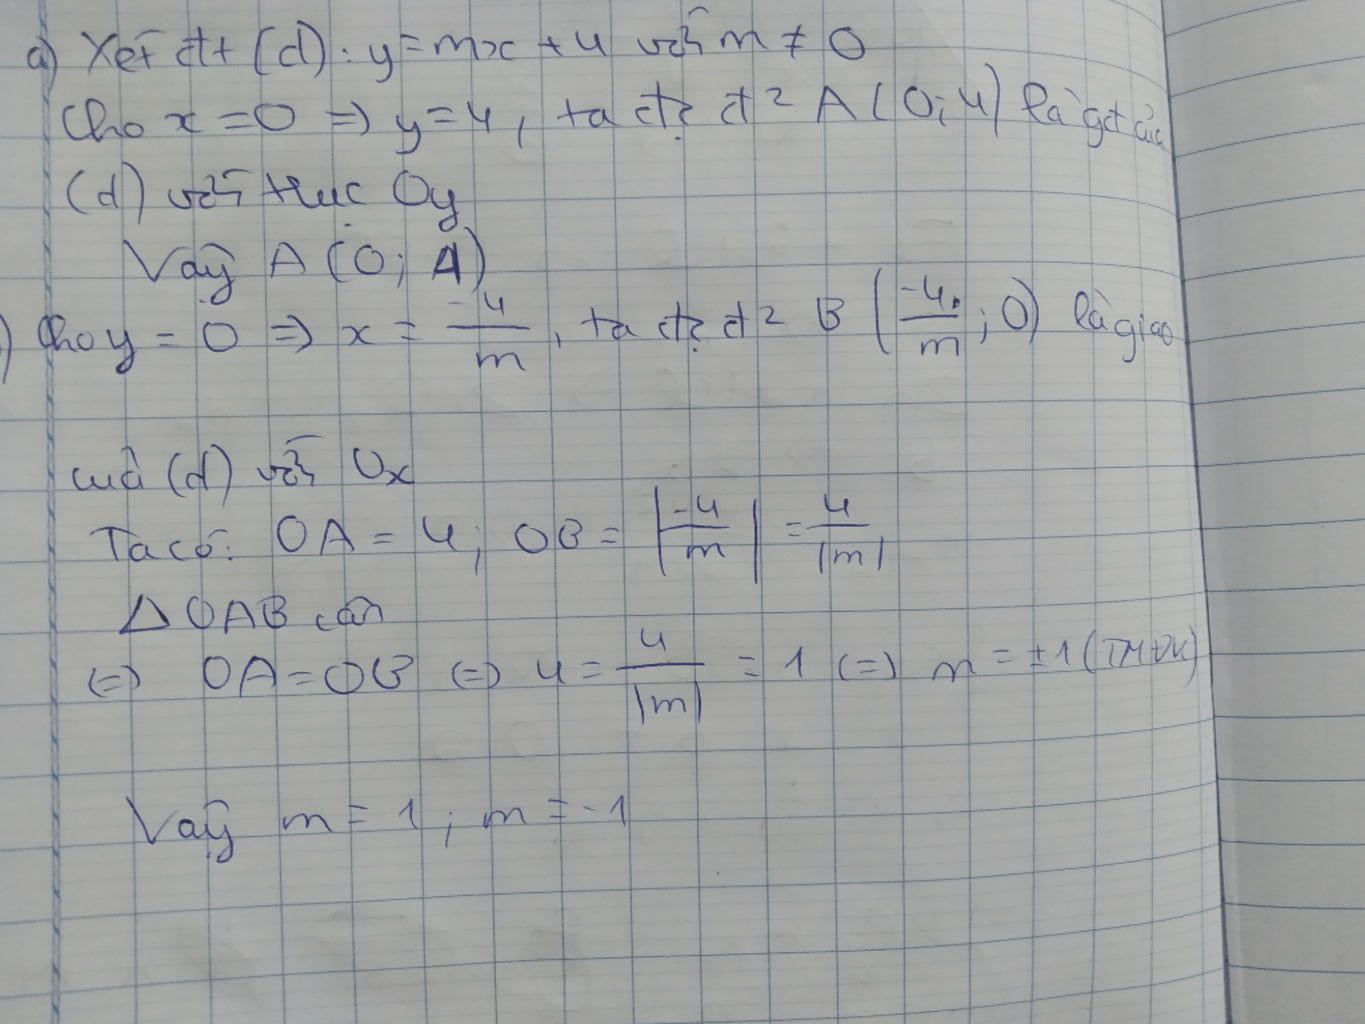 a) Xét đt (d): y = mx + 4 với m ≠ 0
Cho x = 0 => y = 4, ta đc đ² A (0; 4) là gđ của
(d) với trục Oy
Vậy A (0; 4)
) Cho y = 0 => x = -4/m, ta đc đ² B (-4/m; 0) là giao
của (d) với Ox
Ta có: OA = 4; OB = |-4/m| = 4/|m|
Δ OAB cân
(=) OA = OB (=) 4 = 4/|m| = 1 (=) m = ±1 (TMĐK)
Vậy m = 1; m = -1